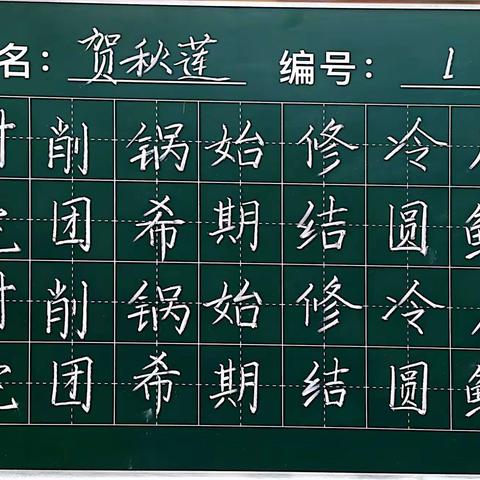 名：贺秋莲 编号：1
削锅始修冷
团希期结圆
削锅始修冷
团希期结圆